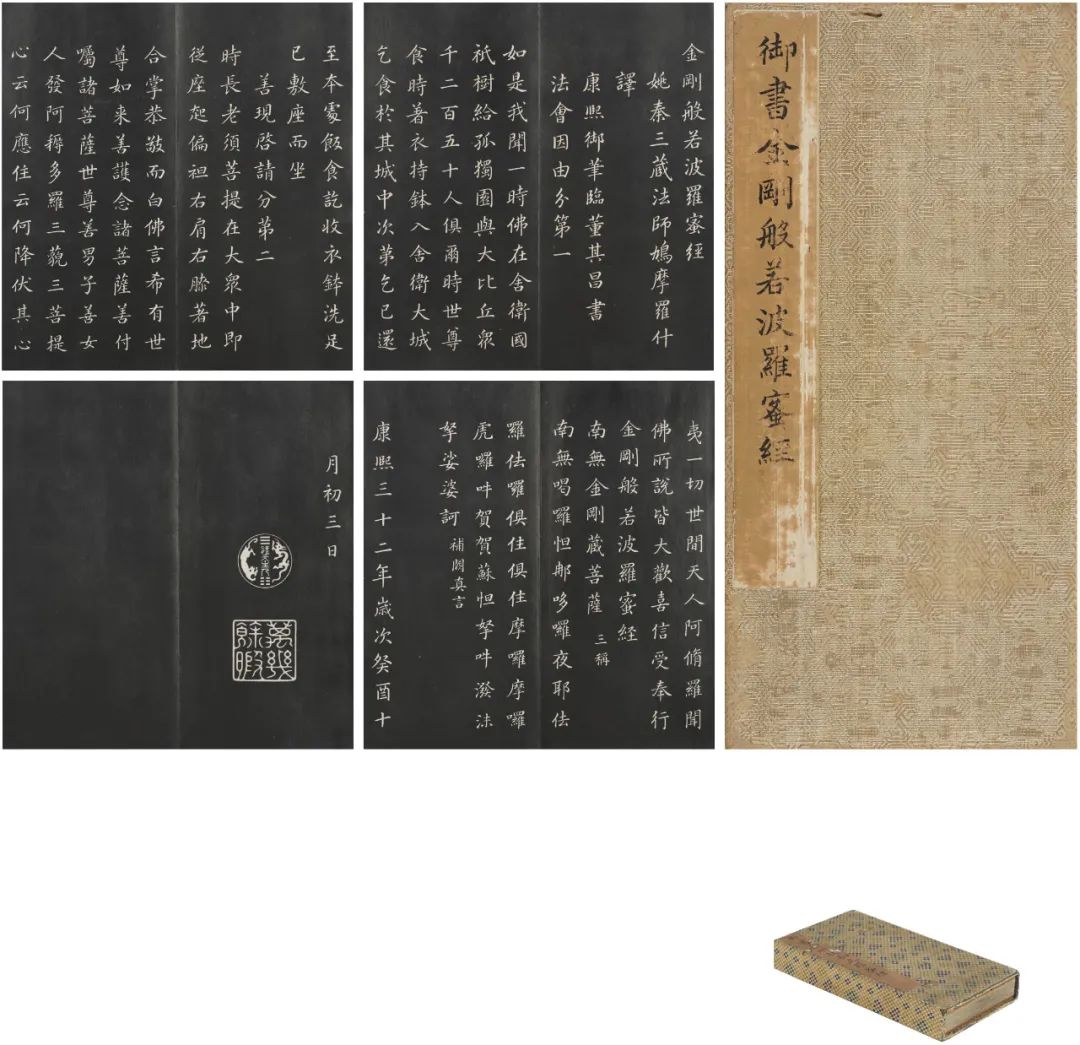 御書金剛般若波羅蜜經
金剛般若波羅蜜經
姚秦三蔵法師鳩摩羅什
譯
康熙御筆臨董其昌書
法會因由分第一
如是我聞一時佛在舍衛國
祇樹給孤獨園與大比丘衆
千二百五十人俱爾時世尊
食時著衣持鉢入舍衛大城
乞食於其城中次第乞已還
至本處飯食訖收衣鉢洗足
已敷座而坐
善現啓請分第二
時長老須菩提在大衆中即
從座起偏袒右肩右膝著地
合掌恭敬而白佛言希有世
尊如来善護念諸菩薩善付
囑諸菩薩世尊善男子善女
人發阿耨多羅三藐三菩提
心云何應住云何降伏其心
夷一切世間天人阿脩羅聞
佛所說皆大歡喜信受奉行
金剛般若波羅蜜経
南無金剛藏菩薩 三稱
南無喝囉怛那哆囉夜耶佉
羅佉囉俱住俱住摩囉摩囉
虎囉吽賀賀蘇怛拏吽潑沫
拏娑婆訶 補闕真言
康熙三十二年歲次癸酉十
月初三日
萬幾餘暇